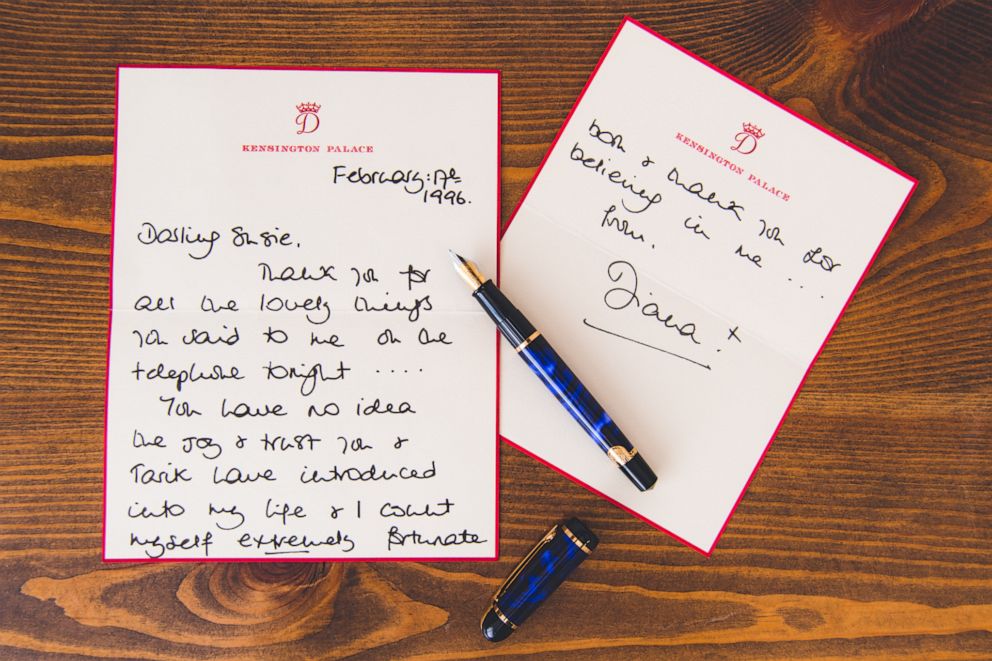 D
KENSINGTON PALACE
February: 17th
1996.
Darling Susie,
Thank you for
all the lovely things
you said to me on the
telephone tonight .....
You have no idea
the joy & trust you &
Tarik have introduced
into my life & I count
myself extremely fortunate
D
KENSINGTON PALACE
both & thank you for
believing in me ....
from.
Diana. x